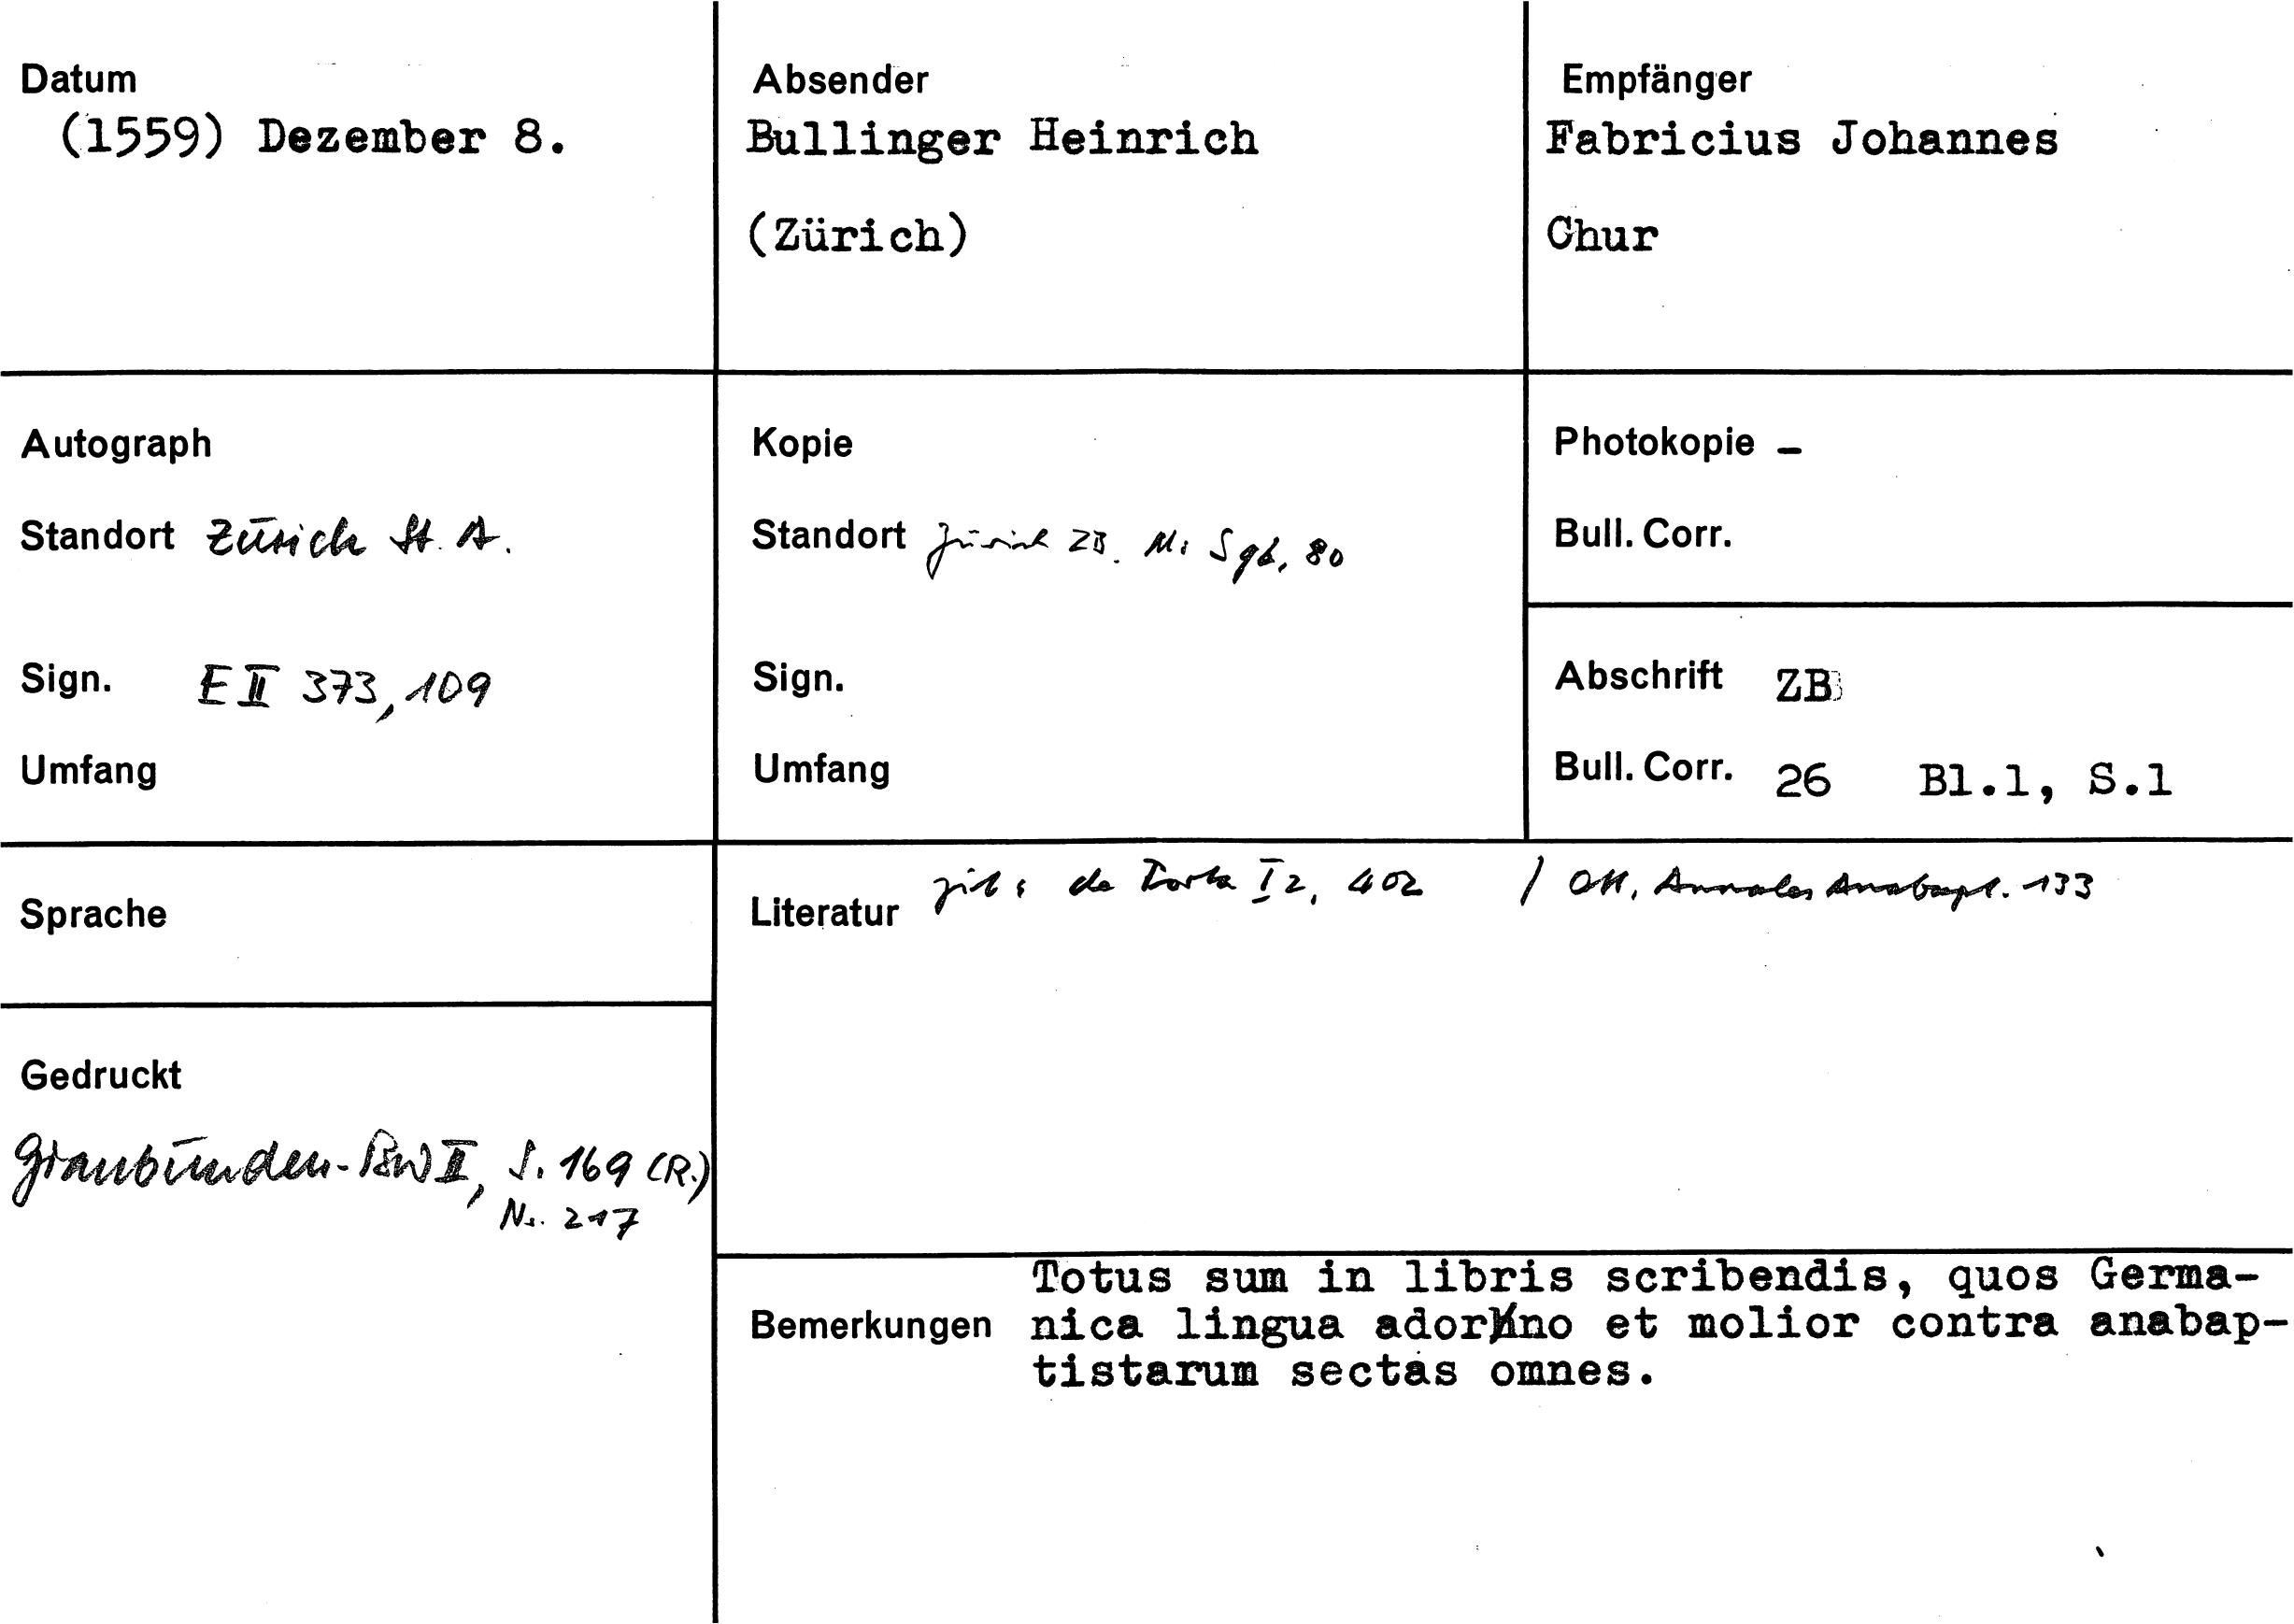 Datum
(1559) Dezember 8.
Absender
Bullinger Heinrich
(Zürich)
Empfänger
Fabricius Johannes
Chur
Autograph
Standort Zürich St. A.
Sign. E II 373, 109
Umfang
Kopie
Standort Zürich ZB. Ms 80
Sign.
Umfang
Photokopie –
Bull. Corr.
Abschrift ZB
Bull. Corr. 26 Bl.1, S.1
Sprache
Literatur zit: de Porta I 2, 402 / Ott, Annales Anabapt. 133
Gedruckt
Graubünden-BW II, S. 169 (R.)
Nr. 217
Bemerkungen
Totus sum in libris scribendis, quos Germa-
nica lingua adorno et molior contra anabap-
tistarum sectas omnes.